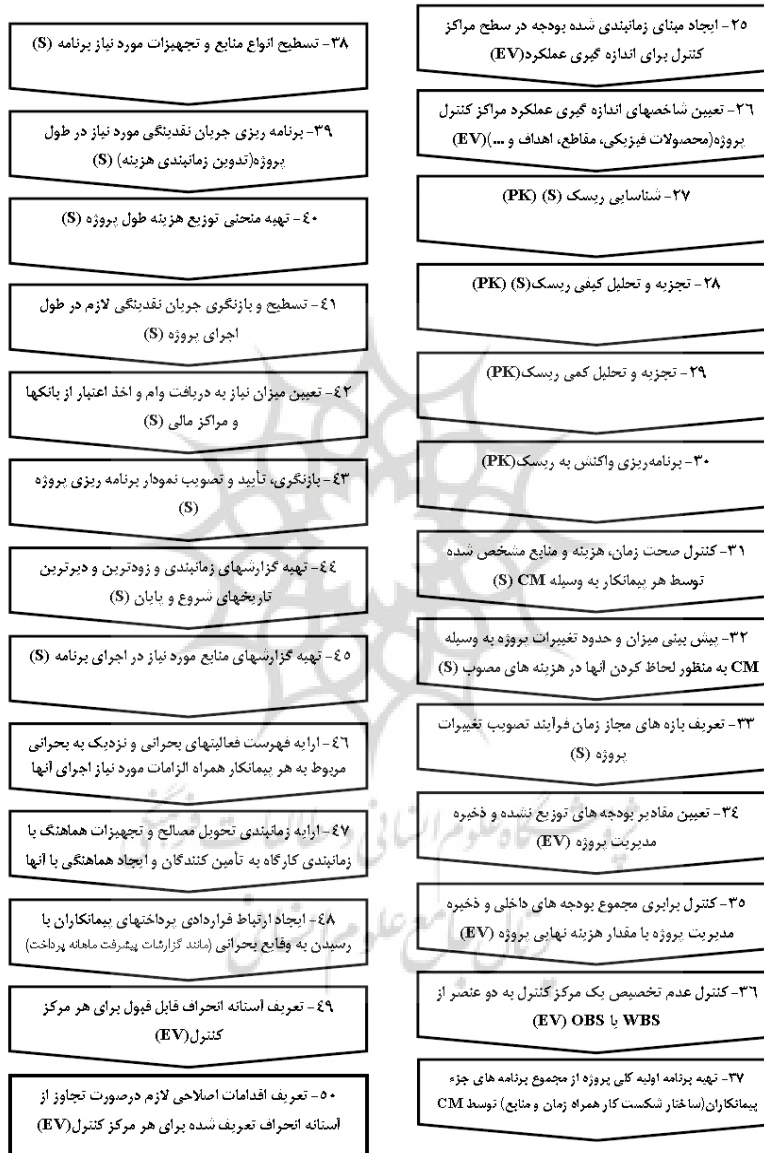 ۲۵- ایجاد مبنای زمانبندی شده بودجه در سطح مراکز
کنترل برای اندازه گیری عملکرد(EV)
۲۶- تعیین شاخصهای اندازه گیری عملکرد مراکز کنترل
پروژه(محصولات فیزیکی، مقاطع، اهداف و ...)(EV)
۲۷- شناسایی ریسک (S) (PK)
۲۸- تجزیه و تحلیل کیفی ریسک(S) (PK)
۲۹- تجزیه و تحلیل کمی ریسک(PK)
۳۰- برنامه‌ریزی واکنش به ریسک(PK)
۳۱- کنترل صحت زمان، هزینه و منابع مشخص شده
توسط هر پیمانکار به وسیله CM (S)
۳۲- پیش بینی میزان و حدود تغییرات پروژه به وسیله
CM به منظور لحاظ کردن آنها در هزینه های مصوب (S)
۳۳- تعریف بازه های مجاز زمان فرآیند تصویب تغییرات
پروژه (S)
۳۴- تعیین مقادیر بودجه های توزیع نشده و ذخیره
مدیریت پروژه (EV)
۳۵- کنترل برابری مجموع بودجه های داخلی و ذخیره
مدیریت پروژه با مقدار هزینه نهایی پروژه (EV)
۳۶- کنترل عدم تخصیص یک مرکز کنترل به دو عنصر از
WBS یا OBS (EV)
۳۷- تهیه برنامه اولیه کلی پروژه از مجموع برنامه های جزء
پیمانکاران(ساختار شکست کار همراه زمان و منابع) توسط CM
۳۸- تسطیح انواع منابع و تجهیزات مورد نیاز برنامه (S)
۳۹- برنامه ریزی جریان نقدینگی مورد نیاز در طول
پروژه(تدوین زمانبندی هزینه) (S)
۴۰- تهیه منحنی توزیع هزینه طول پروژه (S)
۴۱- تسطیح و بازنگری جریان نقدینگی لازم در طول
اجرای پروژه (S)
۴۲- تعیین میزان نیاز به دریافت وام و اخذ اعتبار از بانکها
و مراکز مالی (S)
۴۳- بازنگری، تأیید و تصویب نمودار برنامه ریزی پروژه
(S)
۴۴- تهیه گزارشهای زمانبندی و زودترین و دیرترین
تاریخهای شروع و پایان (S)
۴۵- تهیه گزارشهای منابع مورد نیاز در اجرای برنامه (S)
۴۶- ارایه فهرست فعالیتهای بحرانی و نزدیک به بحرانی
مربوط به هر پیمانکار همراه الزامات مورد نیاز اجرای آنها
۴۷- ارایه زمانبندی تحویل مصالح و تجهیزات هماهنگ با
زمانبندی کارگاه به تأمین کنندگان و ایجاد هماهنگی با آنها
۴۸- ایجاد ارتباط قراردادی پرداختهای پیمانکاران با
رسیدن به وقایع بحرانی (مانند گزارشات پیشرفت ماهانه پرداخت)
۴۹- تعریف آستانه انحراف قابل قبول برای هر مرکز
کنترل(EV)
۵۰- تعریف اقدامات اصلاحی لازم درصورت تجاوز از
آستانه انحراف تعریف شده برای هر مرکز کنترل(EV)
پژوهشگاه علوم انسانی و مطالعات فرهنگی
پرتال جامع علوم انسانی